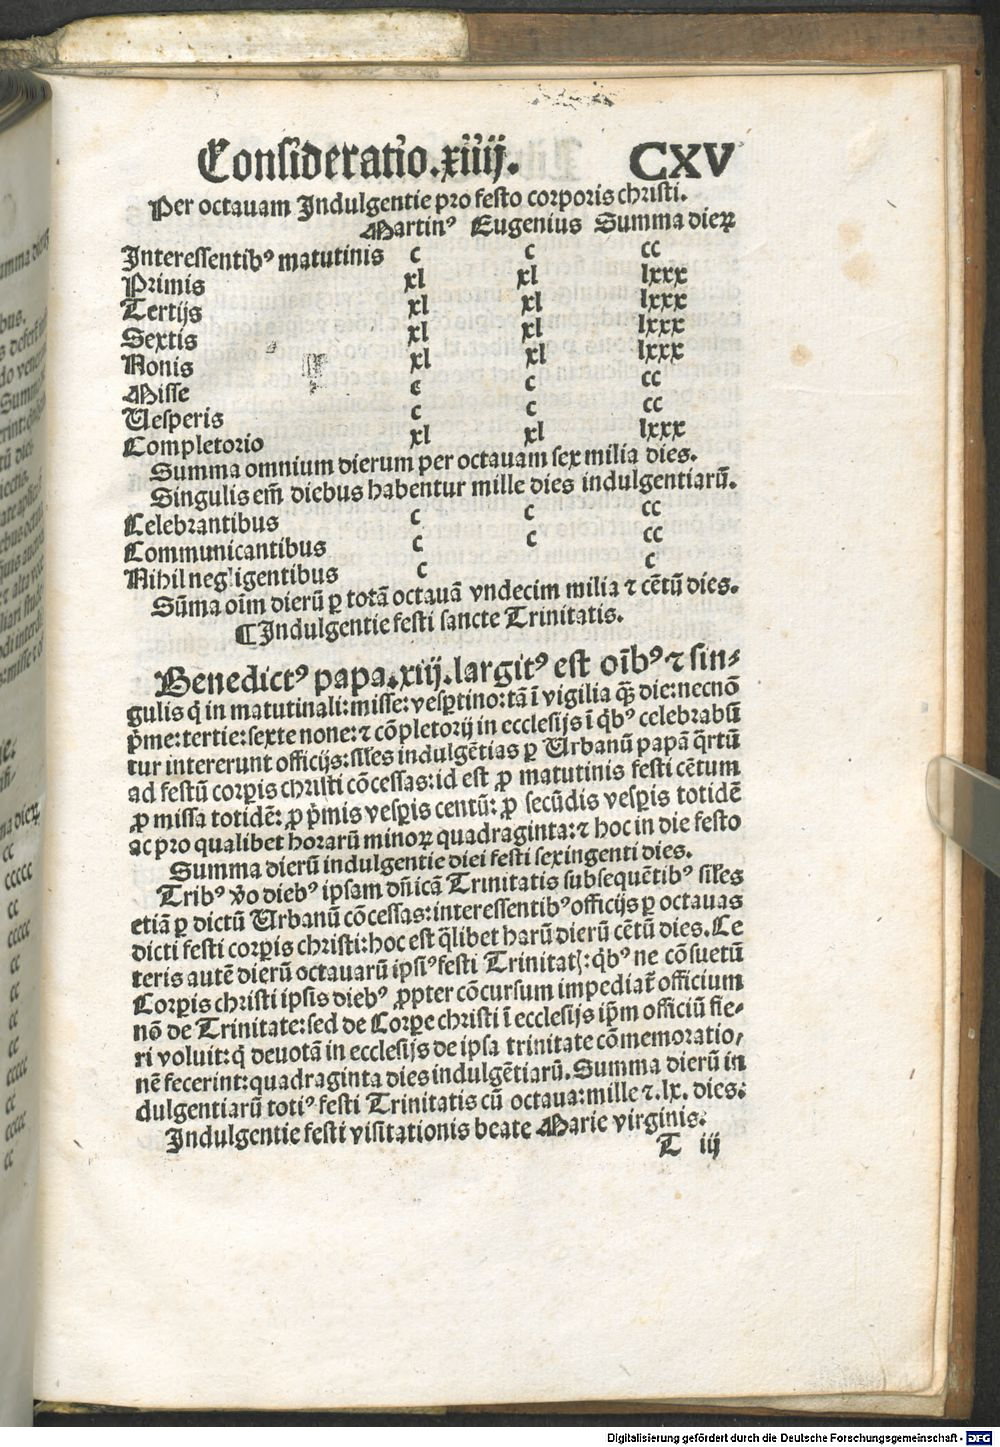 Consideratio.xiiij. CXV
Per octauam Indulgentie pro festo corporis christi.
Martinꝰ Eugenius Summa dieꝝ
Interessentibꝰ matutinis c c cc
Primis xl xl lxxx
Tertijs xl xl lxxx
Sextis xl xl lxxx
Nonis xl xl lxxx
Misse c c cc
Uesperis c c cc
Completorio xl xl lxxx
Summa omnium dierum per octauam sex milia dies.
Singulis em̄ diebus habentur mille dies indulgentiarū.
Celebrantibus c c cc
Communicantibus c c cc
Nihil negligentibus c c
Sūma oīm dierū ꝑ totā octauā vndecim milia ⁊ cētū dies.
¶Indulgentie festi sancte Trinitatis.
Benedictꝰ papa.xiij.largitꝰ est oībꝰ ⁊ sin-
gulis q̇ in matutinali:misse:vesꝑtino:tā ī vigilia q̄ꝫ die:necnō
p̄me:tertie:sexte none:⁊ cōpletorij in ecclesijs ī q̇bꝰ celebrabū
tur intererunt officijs:sil̄es indulgētias ꝑ Urbanū papā q̄rtū
ad festū corꝑis christi cōcessas:id est ꝓ matutinis festi cētum
ꝓ missa totidē: ꝓ p̄mis vesꝑis centū: ꝓ secūdis vesꝑis totidē
ac pro qualibet horarū minoꝝ quadraginta:⁊ hoc in die festo
Summa dierū indulgentie diei festi sexingenti dies.
Tribꝰ v̄o diebꝰ ipsam dn̄icā Trinitatis subsequētibꝰ sil̄es
etiā ꝑ dictū Urbanū cōcessas:interessentibꝰ officijs ꝑ octauas
dicti festi corꝑis christi:hoc est q̄libet harū dierū cētū dies.Ce
teris autē dierū octauarū ipsiꝰ festi Trinitatꝭ:q̇bꝰ ne cōsuetū
Corꝑis christi ipsis diebꝰ ꝓpter cōcursum impediat̄ officium
nō de Trinitate:sed de Corꝑe christi ī ecclesijs ip̄m officiū fie-
ri voluit:q̇ deuotā in ecclesijs de ipsa trinitate cōmemoratio-
nē fecerint:quadraginta dies indulgētiarū.Summa dierū in
dulgentiarū totiꝰ festi Trinitatis cū octaua:mille ⁊.lx. dies.
Indulgentie festi visitationis beate Marie virginis.
T iij
Digitalisierung gefördert durch die Deutsche Forschungsgemeinschaft - DFG